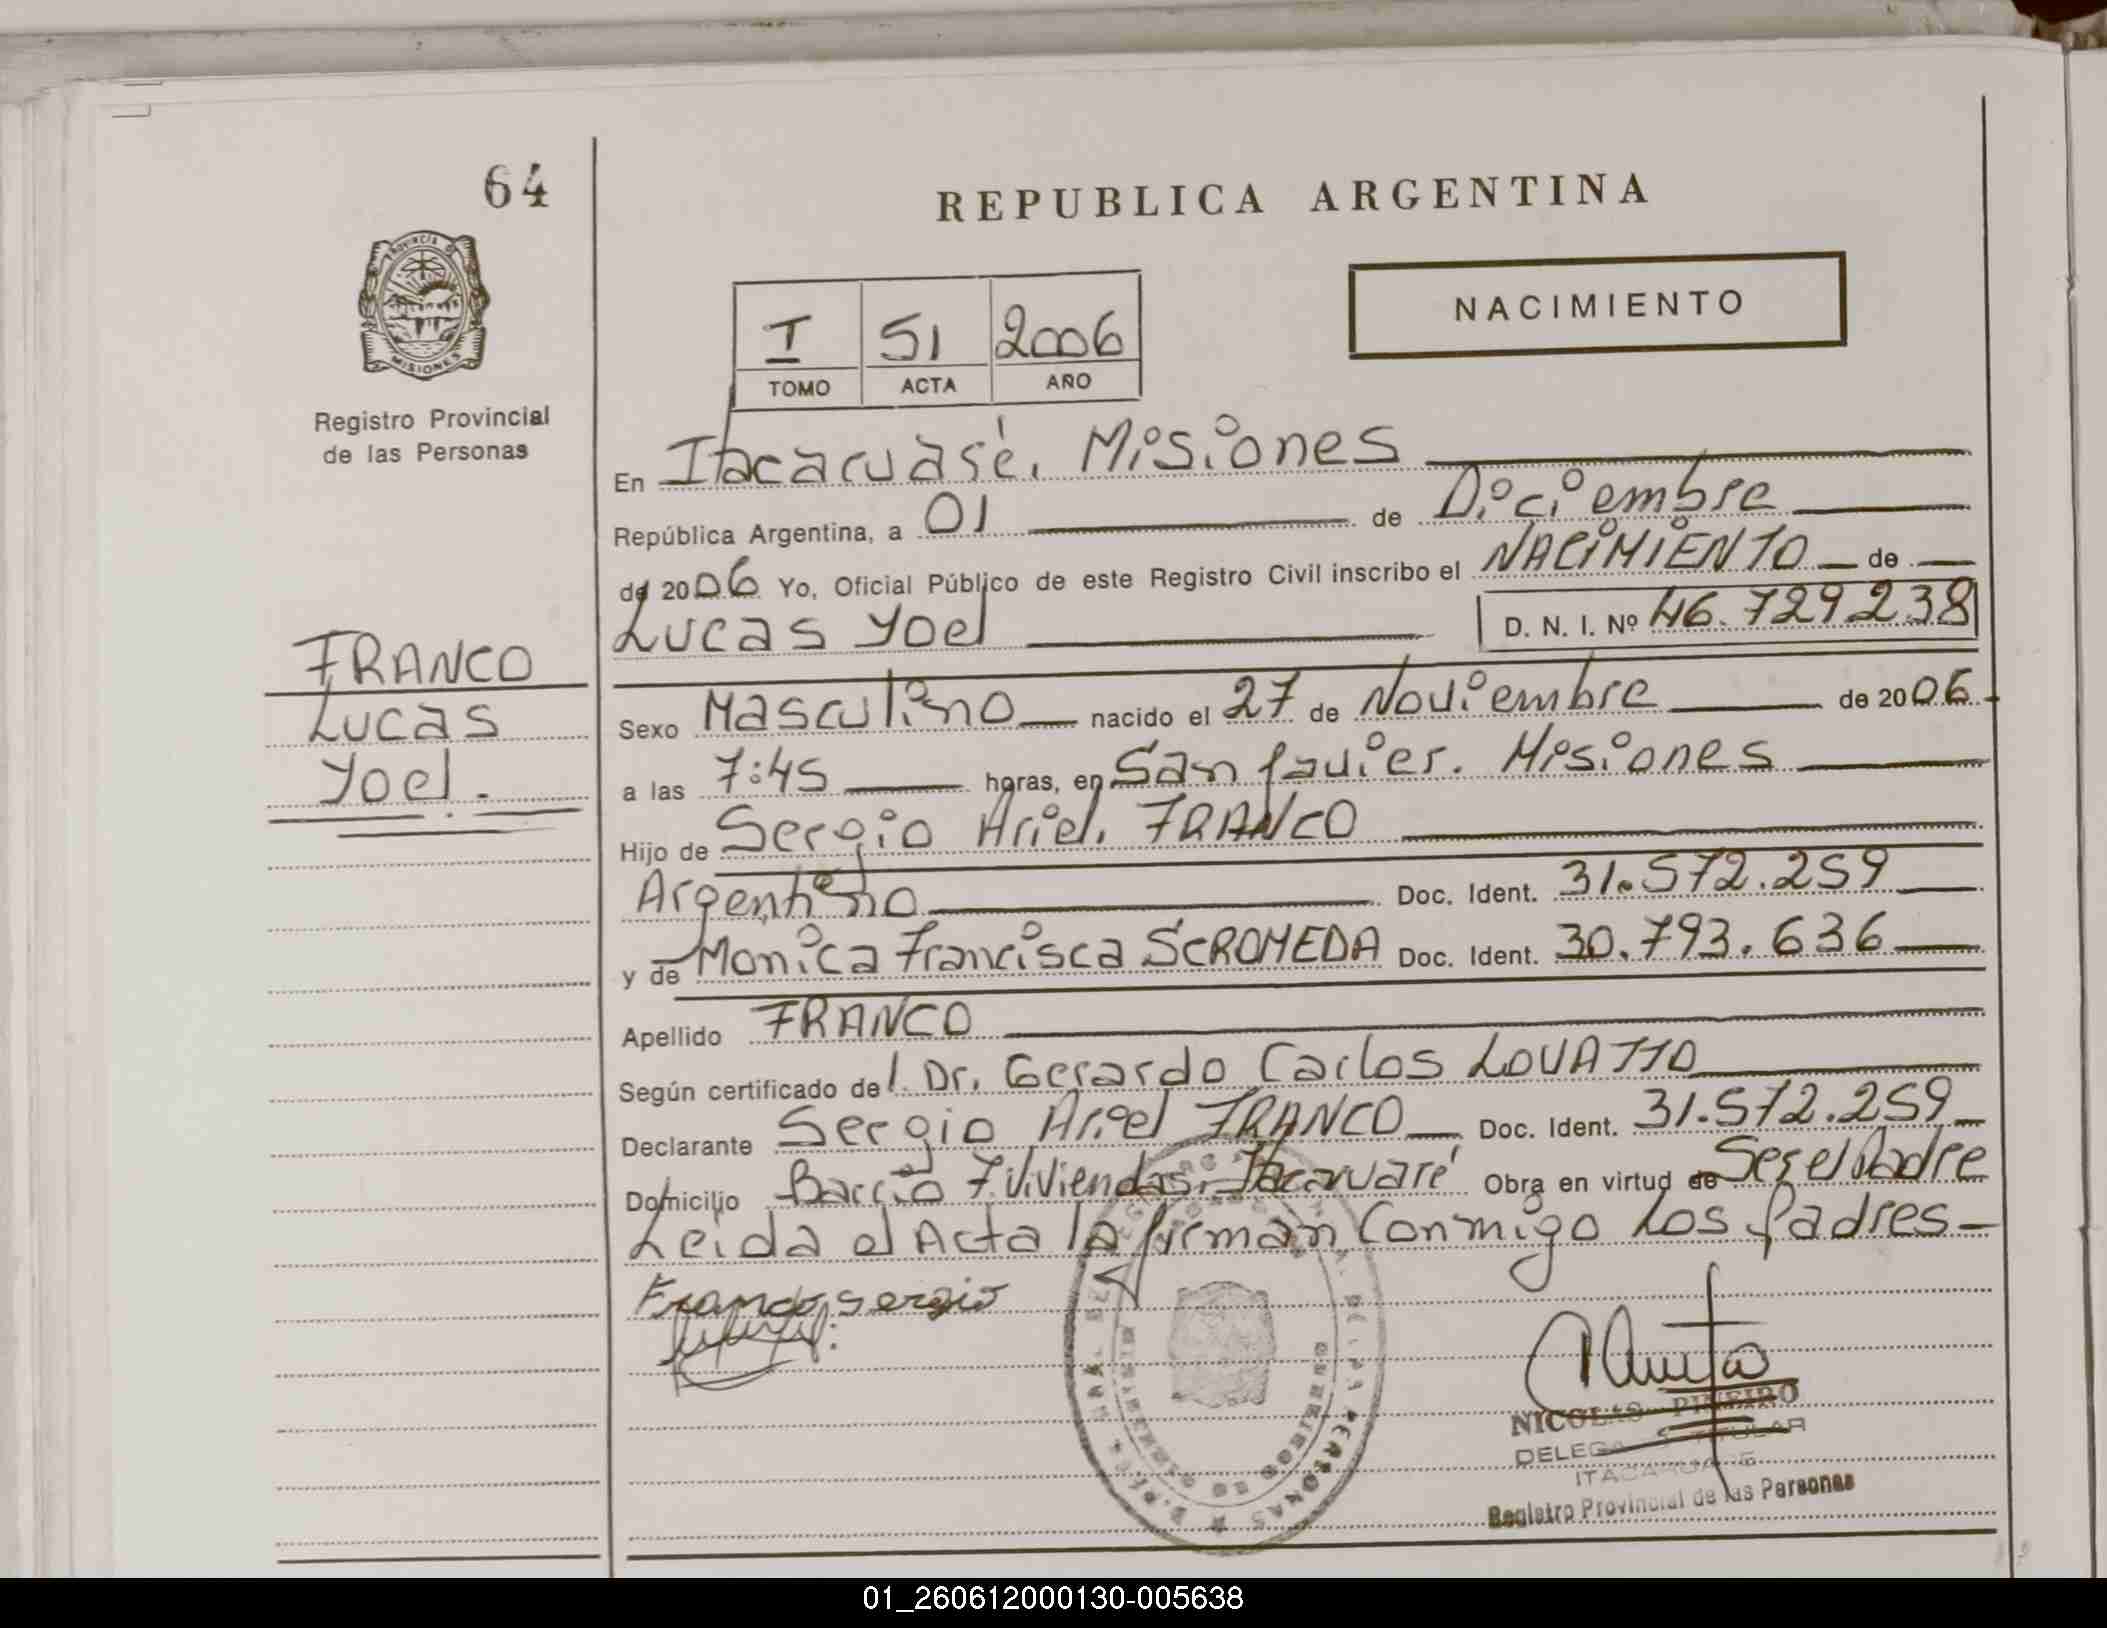 64
REPUBLICA ARGENTINA
PROVINCIA DE
MISIONES
NACIMIENTO
I 51 2006
TOMO ACTA AÑO
Registro Provincial
de las Personas
En Itacaruaré. Misiones
República Argentina, a 01 de Diciembre
de 2006 Yo, Oficial Público de este Registro Civil inscribo el NACIMIENTO de
Lucas Yoel D. N. I. Nº 46.729.238
FRANCO
Lucas
Yoel.
Sexo Masculino nacido el 27 de Noviembre de 2006.
a las 7:45 horas, en San Javier. Misiones
Hijo de Sergio Ariel. FRANCO
Argentino Doc. Ident. 31.572.259
y de Monica Francisca SCROMEDA Doc. Ident. 30.793.636
Apellido FRANCO
Según certificado del. Dr. Gerardo Carlos LOVATTO
Declarante Sergio Ariel FRANCO Doc. Ident. 31.572.259
Domicilio Barrio 7. Viviendas. Itacaruaré Obra en virtud de Ser el Padre
Leida el Acta la firman Conmigo los Padres
Franco Sergio
NICOLAS PIÑEIRO
DELEGADO TITULAR
ITACARUARE
Registro Provincial de las Personas
01_260612000130-005638